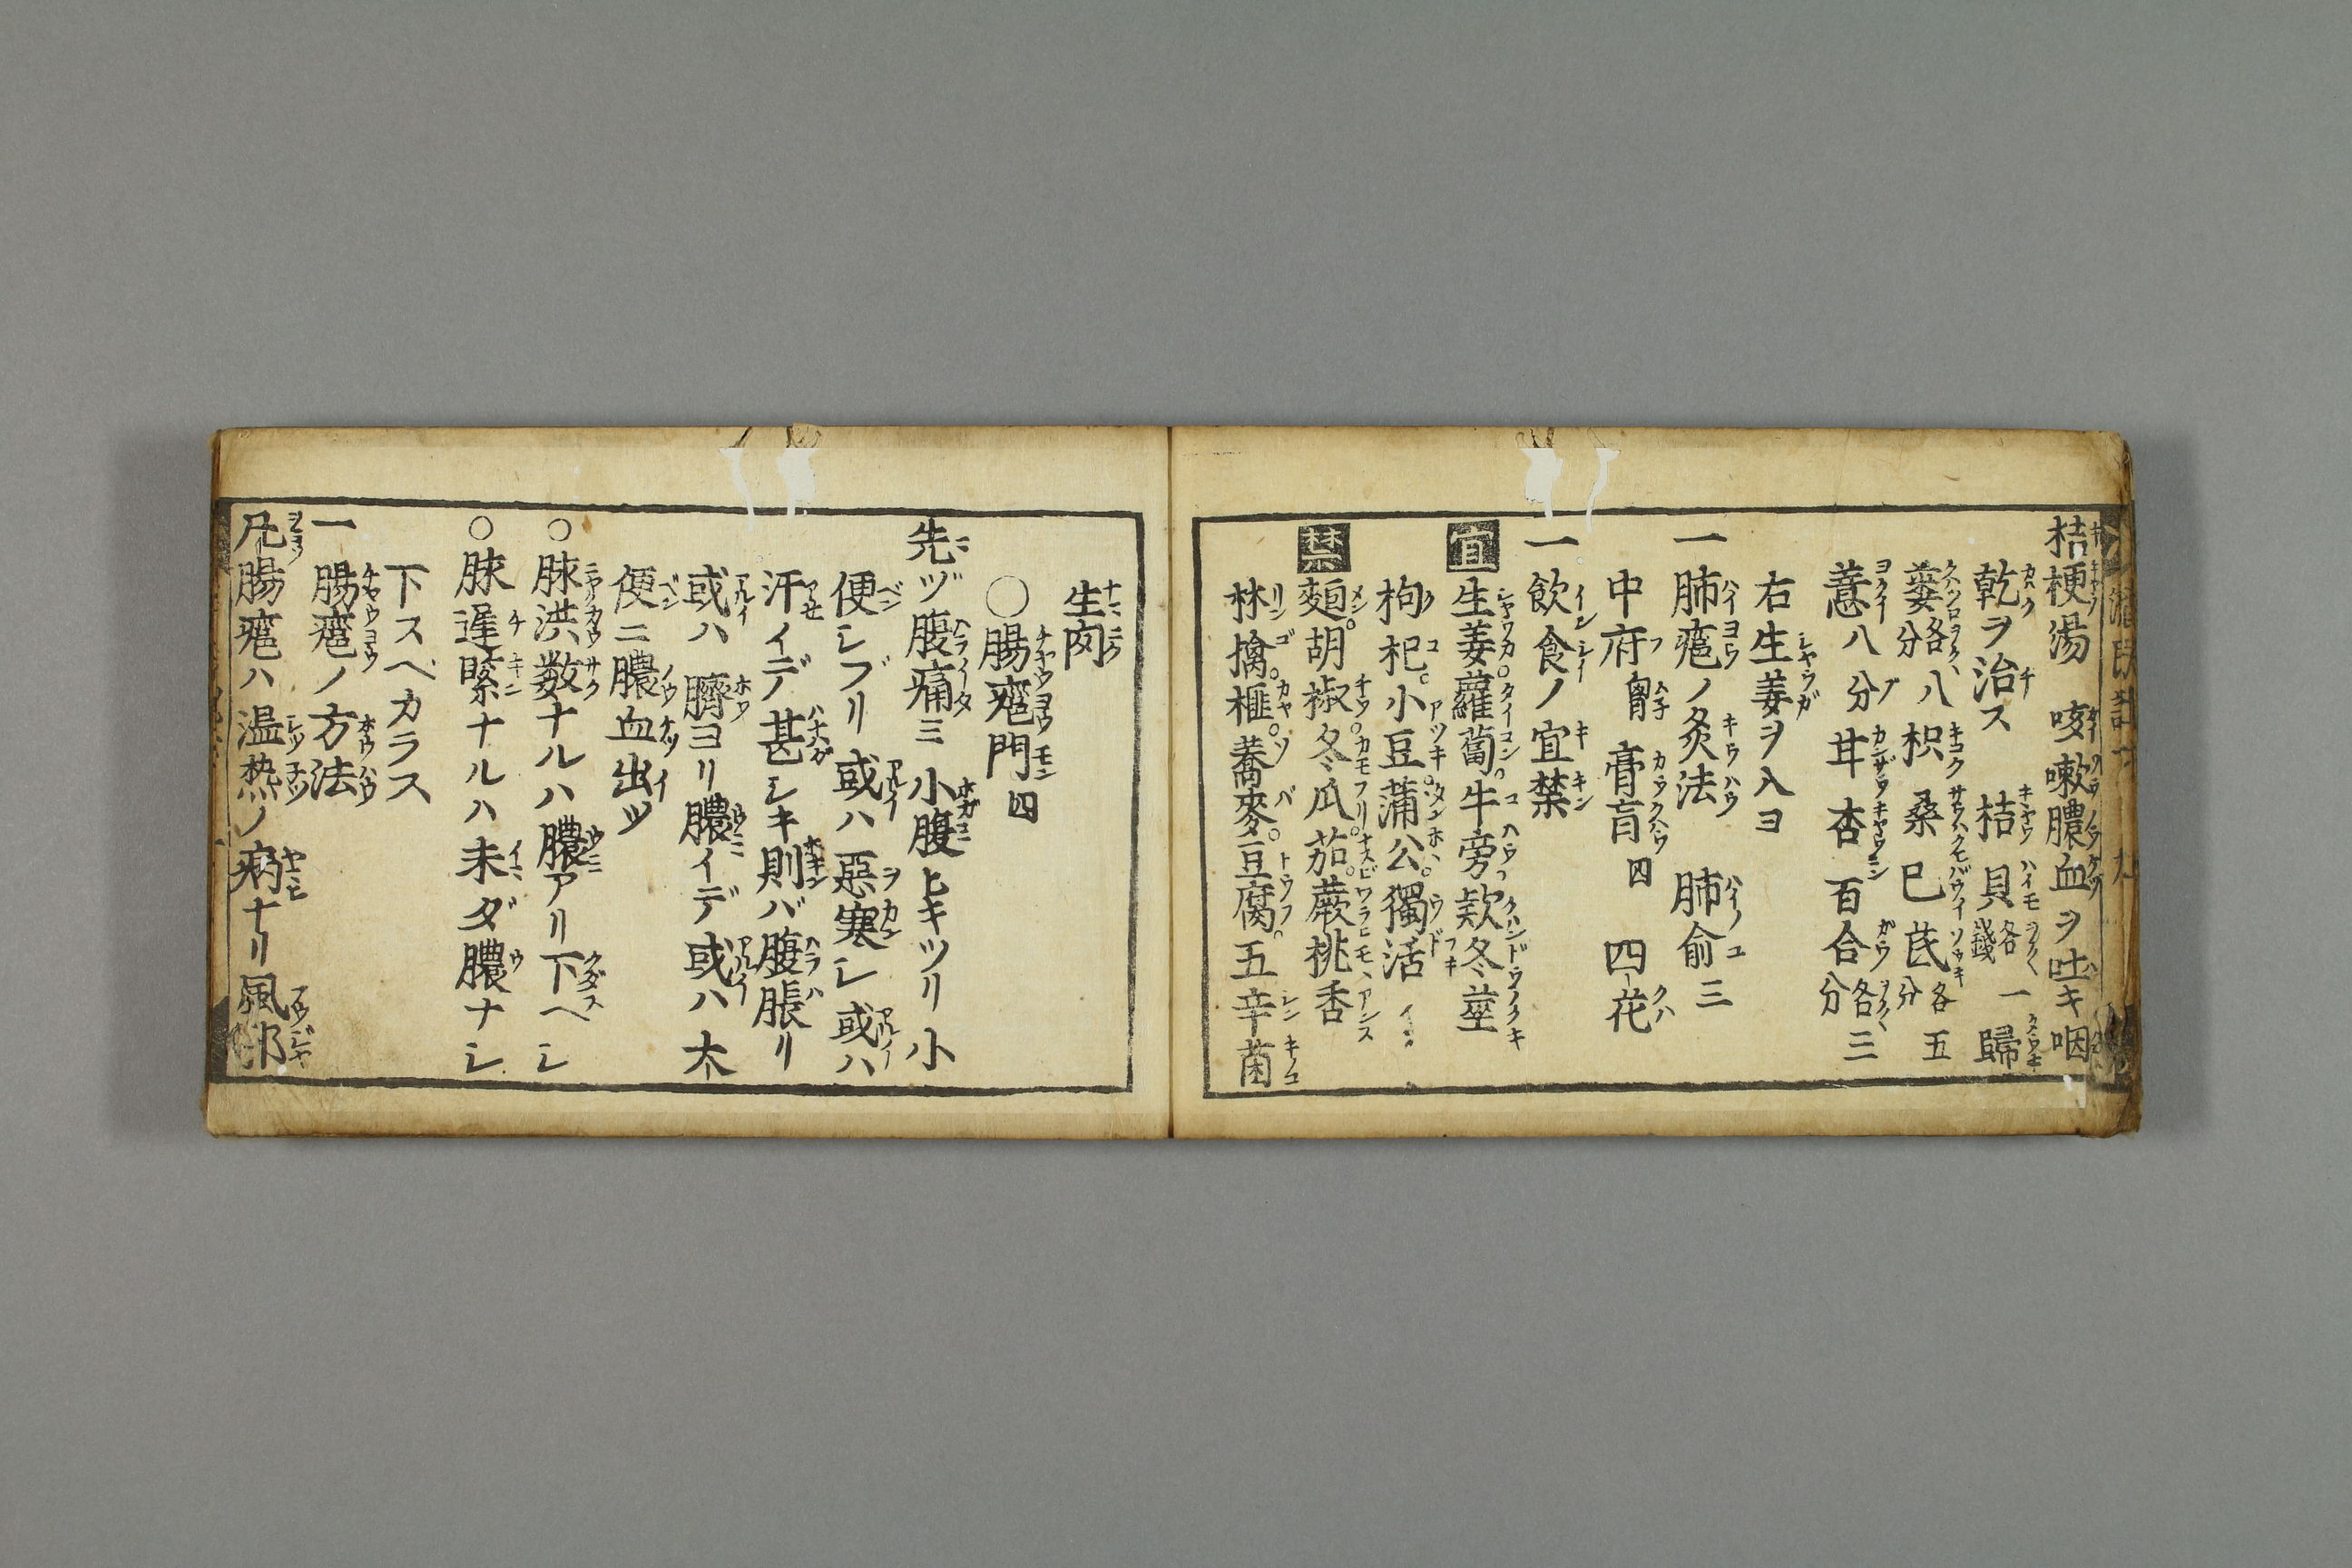 桔梗湯 咳嗽膿血ヲ吐キ咽
乾ヲ治ス 桔 貝各一錢 歸
蔞各八分 枳 桑 巳 芪各五分
薏八分 甘 杏 百合各三分
右生姜ヲ入ヨ
一 肺癰ノ灸法 肺俞三
中府 胷 膏肓四 四花
一 飲食ノ宜禁
宜 生姜蘿蔔牛旁欵冬莖
枸杞小豆蒲公獨活
禁 麺胡椒冬瓜茄蕨桃杏
林檎榧蕎麥豆腐五辛菌
生肉
○腸癰門四
先ヅ腹痛ミ小腹ヒキツリ小
便シブリ或ハ惡寒シ或ハ
汗イデ甚シキ則バ腹脹リ
或ハ臍ヨリ膿イデ或ハ大
便ニ膿血出ヅ
○脉洪数ナルハ膿アリ下ベシ
○脉遲緊ナルハ未ダ膿ナシ
下スベカラス
一 腸癰ノ方法
凡腸癰ハ温热ノ病ナリ風邪